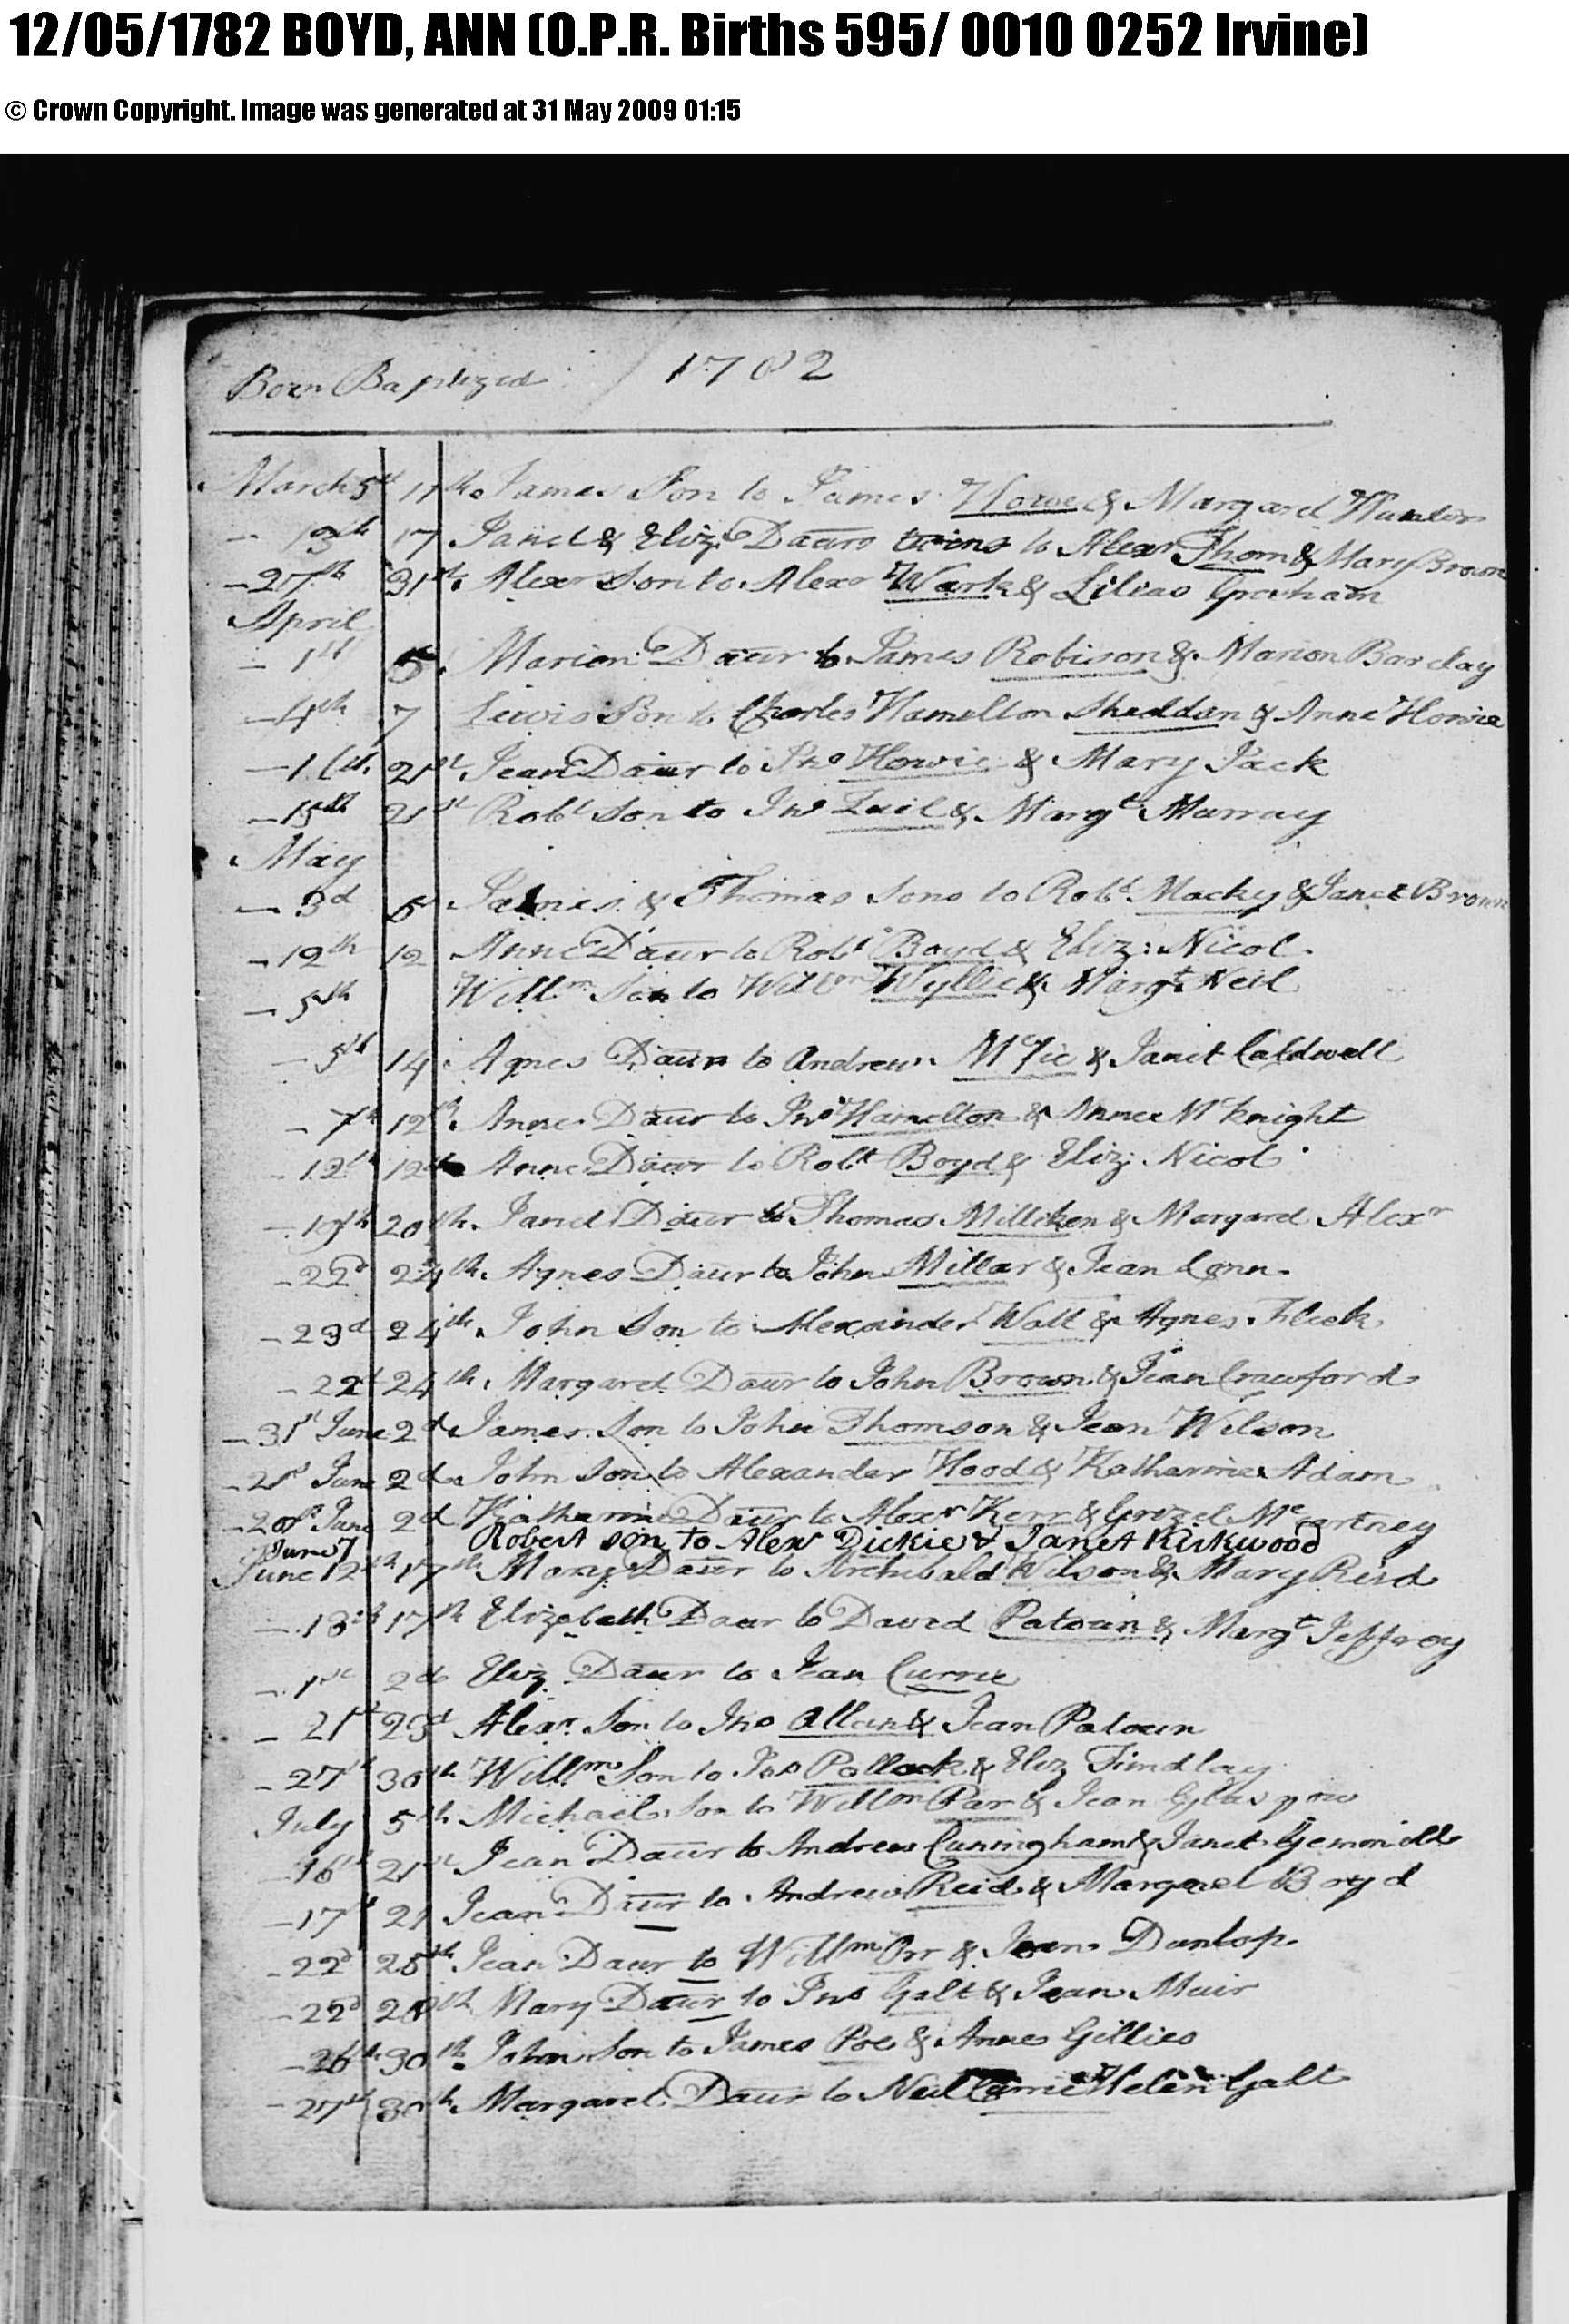 12/05/1782 BOYD, ANN (O.P.R. Births 595/ 0010 0252 Irvine)
© Crown Copyright. Image was generated at 31 May 2009 01:15
Born Baptized 1782
March 5th 17th James Son to James Howe & Margaret Hunter
17 Janet & Eliz: Daurs twins to Alexr Thom & Mary Brown
- 27th 31st Alexr Son to Alexr Wark & Lilias Graham
April
- 1st 5 Marion Daur to James Robison & Marion Barclay
- 4th 7 Lewis Son to Charles Hamelton Sheddan & Anne Howie
21st Jean Daur to Jno Howie & Mary Jack
- 15th 21st Robt Son to Jno & Margt Murray
May
- 3d 5 James & Thomas Sons to Robt Macky & Janet Brown
- 12th 12 Anne Daur to Robt Boyd & Eliz: Nicol
- 5th Willm Son to Willm Wyllie & Margt Neil
- 5th 14 Agnes Daur to Andrew & Janet Caldwell
- 7th 12th Anne Daur to Jno Hamelton & Anne McKnight
- 12th 12th Anne Daur to Robt Boyd & Eliz: Nicol
- 19th 20th Janet Daur to Thomas Milliken & Margaret Alexr
- 22d 24th Agnes Daur to John Millar & Jean Conn
- 23d 24th John Son to Alexander Watt & Agnes Fleck
- 22d 24th Margaret Daur to John Brown & Jean Crawford
- 31st June 2d James Son to John Thomson & Jean Wilson
- 21st June 2d John Son to Alexander Hood & Katharine Adam
June 2d Katharine Daur to Alexr Kerr & Grizel McCartney
June 7 Robert son to Alexr Dickie & Janet Kirkwood
June 12th 17th Mary Daur to Archibald Wilson & Mary Reid
- 13th 17th Elizabeth Daur to David Patoun & Margt Jeffrey
- 1st 2d Eliz Daur to Jean Currie
- 21st 23d Alexr Son to Jno Allan & Jean Patoun
- 27th 30th Willm Son to Jno Pollock & Eliz Findlay
July 5th Michael Son to Willm Par & Jean Glasgow
- 16th 21st Jean Daur to Andrew Cuningham & Janet Gemmill
- 17th 21 Jean Daur to Andrew Reid & Margaret Boyd
- 22d 25th Jean Daur to Willm Orr & Jean Dunlop
- 22d Mary Daur to Jno Galt & Jean Muir
- 26th 30th John Son to James Poe & Anne Gillies
- 27th 30th Margaret Daur to Neil Currie Helen Galt